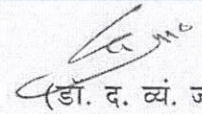 (डॉ. द. व्यं.